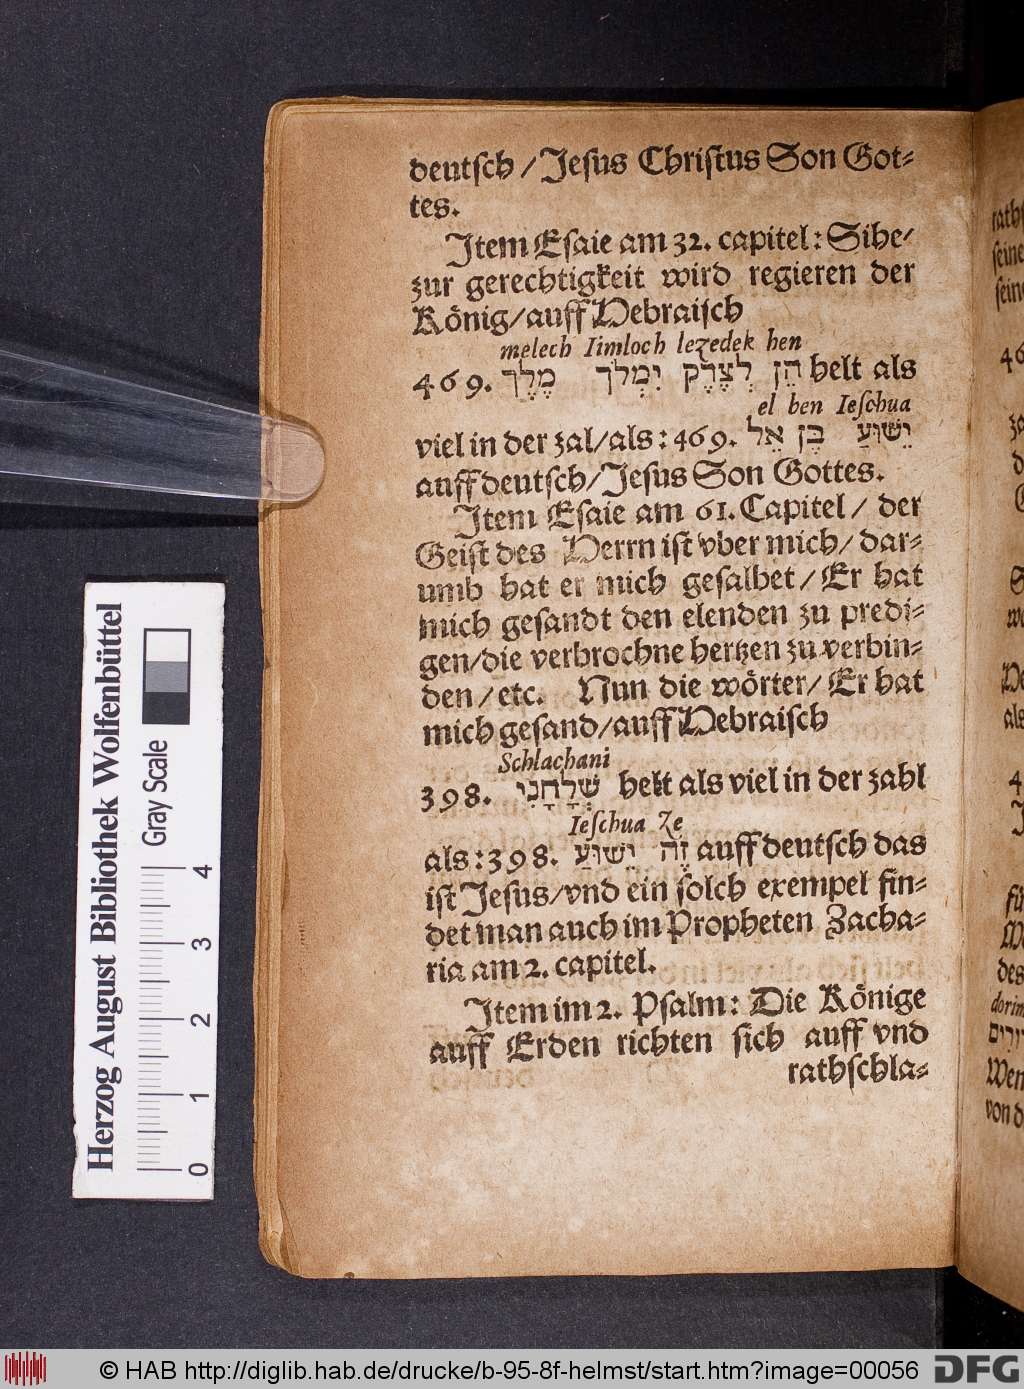 deutsch / Jesus Christus Son Got-
tes.
Jtem Esaie am 32. capitel: Sihe/
zur gerechtigkeit wird regieren der
König/auff Hebraisch
melech Iimloch lezedek hen
469. הֵן לְצֶדֶק יִמְלֹךְ מֶלֶךְ helt als
el ben Ieschua
viel in der zal/als: 469. יֵשׁוּעַ בֶּן אֵל
auff deutsch/Jesus Son Gottes.
Jtem Esaie am 61. Capitel / der
Geist des Herrn ist vber mich/ dar-
umb hat er mich gesalbet / Er hat
mich gesandt den elenden zu predi-
gen/die verbrochne hertzen zu verbin-
den / etc. Nun die wörter/ Er hat
mich gesand/auff Hebraisch
Schlachani
398. שְׁלָחָנִי helt als viel in der zahl
Ieschua Ze
als: 398. זֶה יֵשׁוּעַ auff deutsch das
ist Jesus/vnd ein solch exempel fin-
det man auch im Propheten Zacha-
ria am 2. capitel.
Jtem im 2. Psalm: Die Könige
auff Erden richten sich auff vnd
rathschla-
Herzog August Bibliothek Wolfenbüttel
Gray Scale
0 1 2 3 4
© HAB http://diglib.hab.de/drucke/b-95-8f-helmst/start.htm?image=00056
DFG